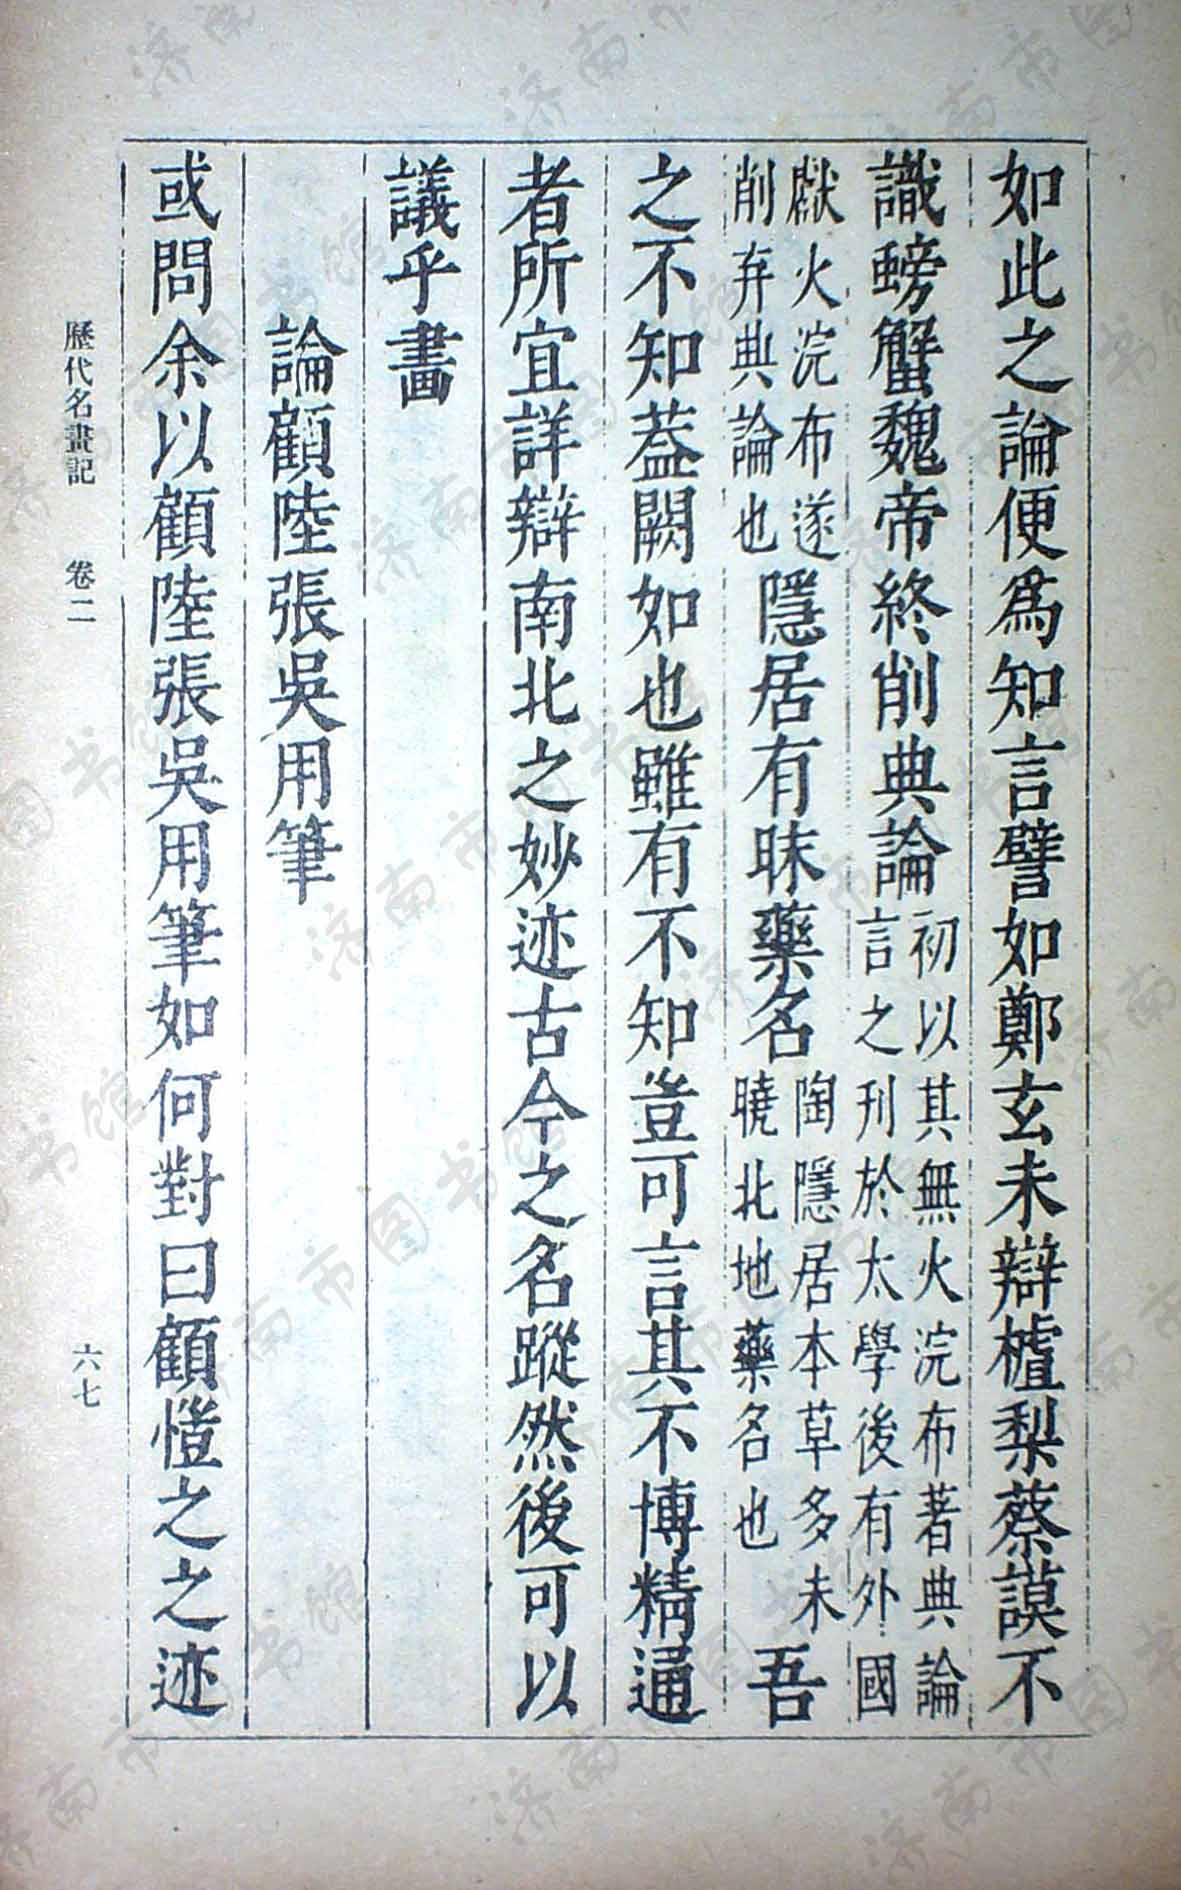 如此之論便爲知言譬如鄭玄未辯樝梨蔡謨不
識螃蟹魏帝終削典論初以其無火浣布著典論言之刊於太學後有外國
獻火浣布遂削弃典論也隱居有昧藥名陶隱居本草多未曉北地藥名也吾
之不知葢闕如也雖有不知豈可言其不博精通
者所宜詳辯南北之妙迹古今之名蹤然後可以
議乎畫
論顧陸張吳用筆
或問余以顧陸張吳用筆如何對曰顧愷之之迹
歷代名畫記 卷二 六七
济南市图书馆